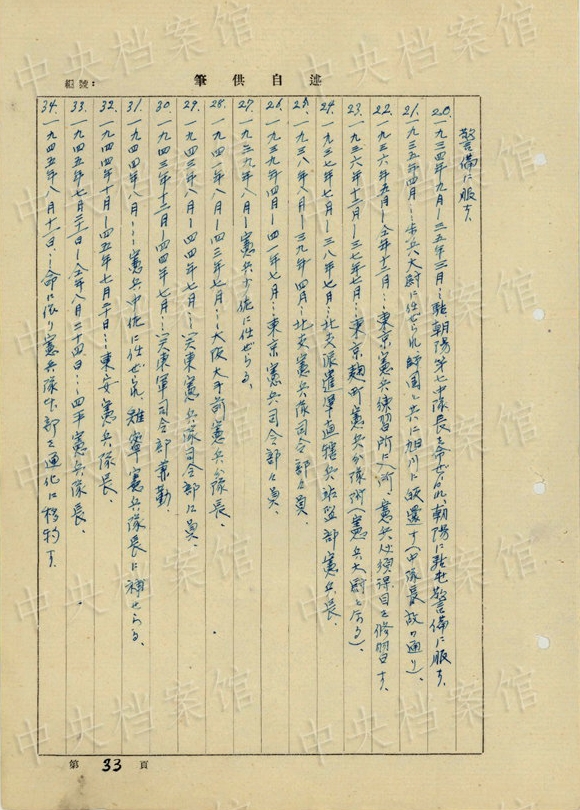 述自供筆
紙號:
警備に服す.
20. 一九三四年九月―三五年三月…駐朝陽第七中隊長を命ぜられ朝陽に駐屯警備に服す.
21. 一九三五年四月…歩兵大尉に任ぜられ師団と共に旭川に帰還す(中隊長故の通り).
22. 一九三六年五月―仝年十二月…東京憲兵練習所に入所、憲兵必須得目を修習す.
23. 一九三六年十二月―三七年七月…東京麹町憲兵分隊附(憲兵大尉となる).
24. 一九三七年七月―三八年七月…北支派遣軍直轄兵站監部憲兵長.
25. 一九三八年八月―三九年四月…北支憲兵隊司令部々員.
26. 一九三九年四月―四一年七月…東京憲兵司令部々員.
27. 一九三九年八月―憲兵少佐に任ぜらる.
28. 一九四一年八月―四三年七月…大阪大手前憲兵分隊長.
29. 一九四三年八月―四四年七月…関東憲兵隊司令部々員.
30. 一九四三年十二月―四四年七月…関東軍司令部兼勤.
31. 一九四四年八月…憲兵中佐に任ぜられ、雞寧憲兵隊長に補せらる.
32. 一九四四年十月―四五年七月二十日…東安憲兵隊長.
33. 一九四五年七月二十一日―仝年八月二十四日…四平憲兵隊長.
34. 一九四五年八月十一日…命に依り憲兵隊本部を通化に移動す.
第 33 頁
中央档案馆